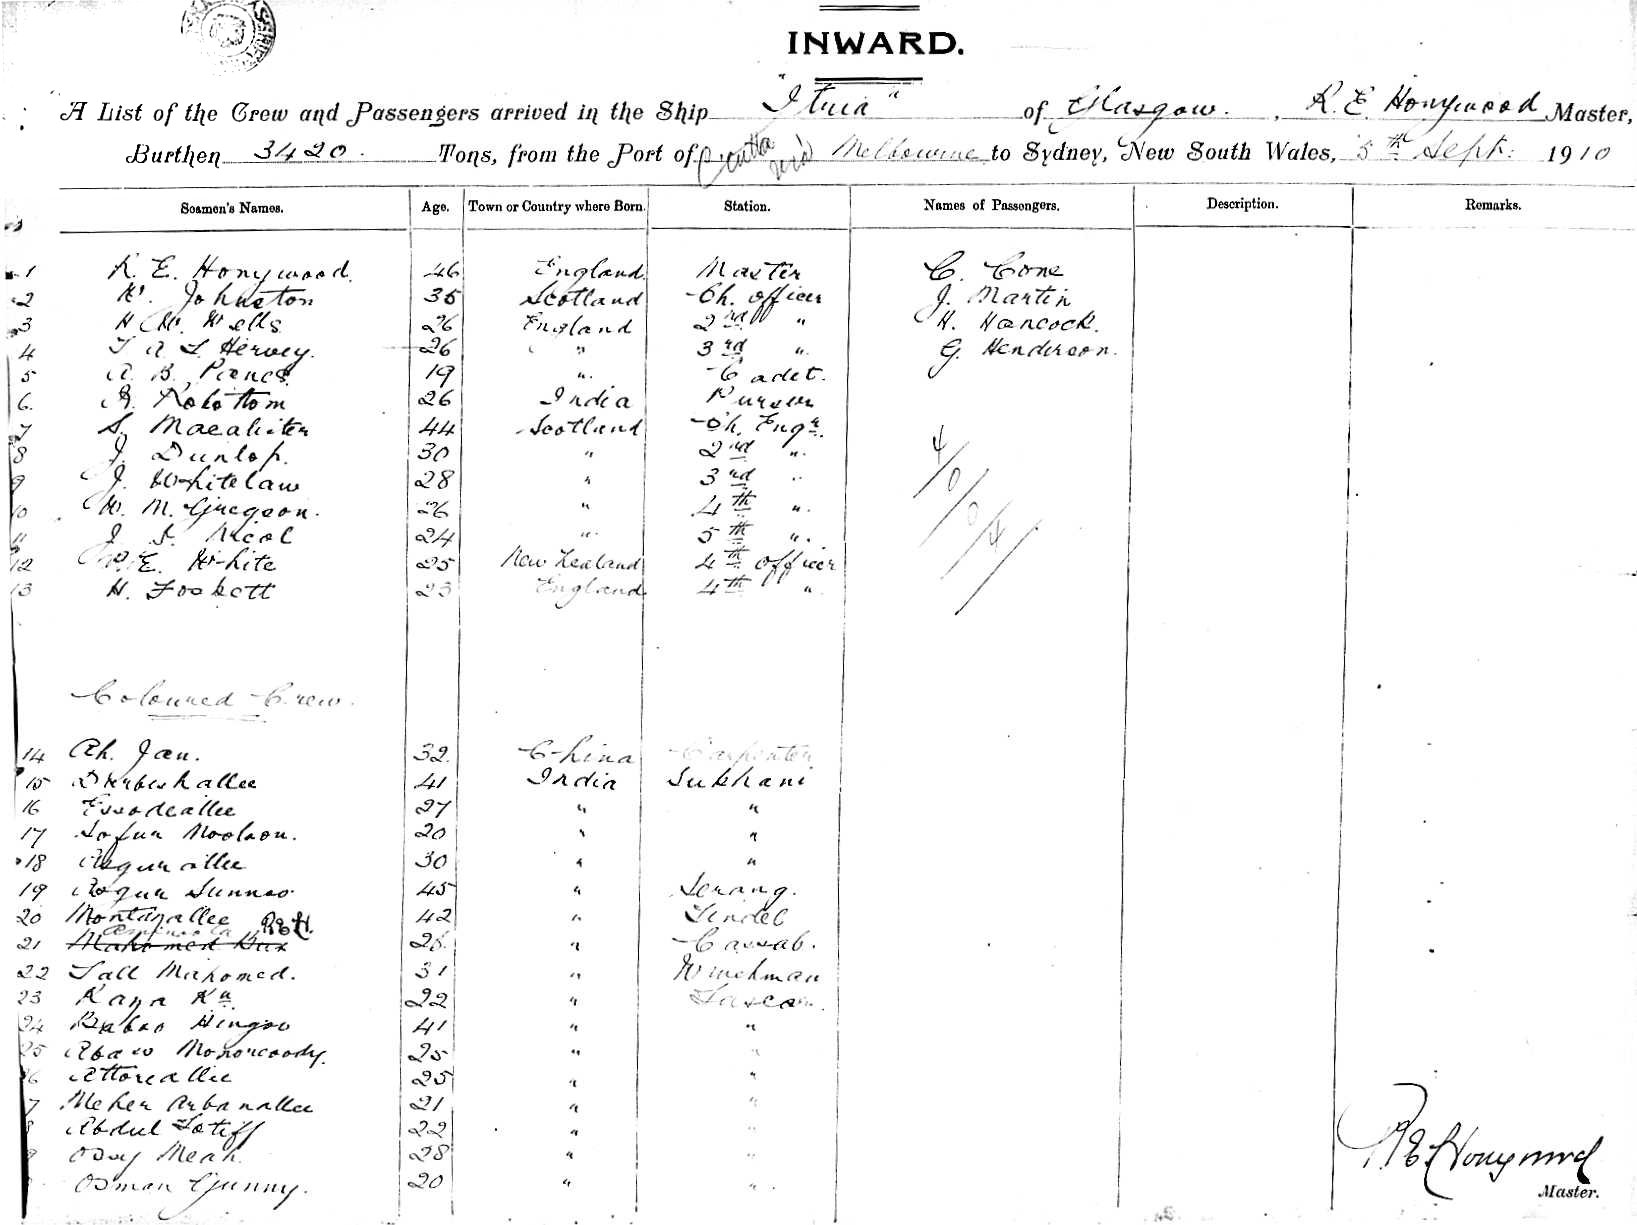 INWARD.
A List of the Crew and Passengers arrived in the Ship "Itria" of Glasgow, R. E. Honywood Master,
Burthen 3420 Tons, from the Port of Calcutta via Melbourne to Sydney, New South Wales, 5th Sept. 1910
Seamen's Names. Age. Town or Country where Born. Station. Names of Passengers. Description. Remarks.
1 R. E. Honywood 46 England Master C. Cone
2 W. Johnston 35 Scotland Ch. officer J. Martin
3 H W. Wells 26 England 2nd " H. Hancock.
4 T A L Hervey. 26 " 3rd " G. Henderson.
5 A. B. 19 " Cadet.
6. A. Robottom 26 India Purser
7 S. Macalister 44 Scotland Ch. Engr.
8 J. Dunlop. 30 " 2nd "
9 J. Whitelaw 28 " 3rd "
10 W. M. Gregson. 26 " 4th "
11 J. S. Nicol 24 " 5th "
12 R. E. White 25 New Zealand 4th officer
13 H. Foskett 23 England 4th "
4/0/0/4/
Coloured Crew.
14 Ah. Jan. 32 China Carpenter
15 41 India Sukhani
16 Essodeallee 27 " "
17 Sofur Moolson. 20 " "
18 30 " "
19 Sunnoo 45 " Serang.
20 Montazallee 42 " Tindel
R E H.
21 Mahomed Bux 26 " Cassab.
22 Lall Mahomed. 31 " Winchman
23 Kaya Ku 22 " Lascar.
24 Baboo Hingoo 41 " "
25 25 " "
6 Attoreallee 25 " "
7 Meher Arbanallee 21 " "
8 Abdul Lotiff 22 " "
9 Meah. 28 " "
Osman Gunny. 20 " "
R E Honywood
Master.